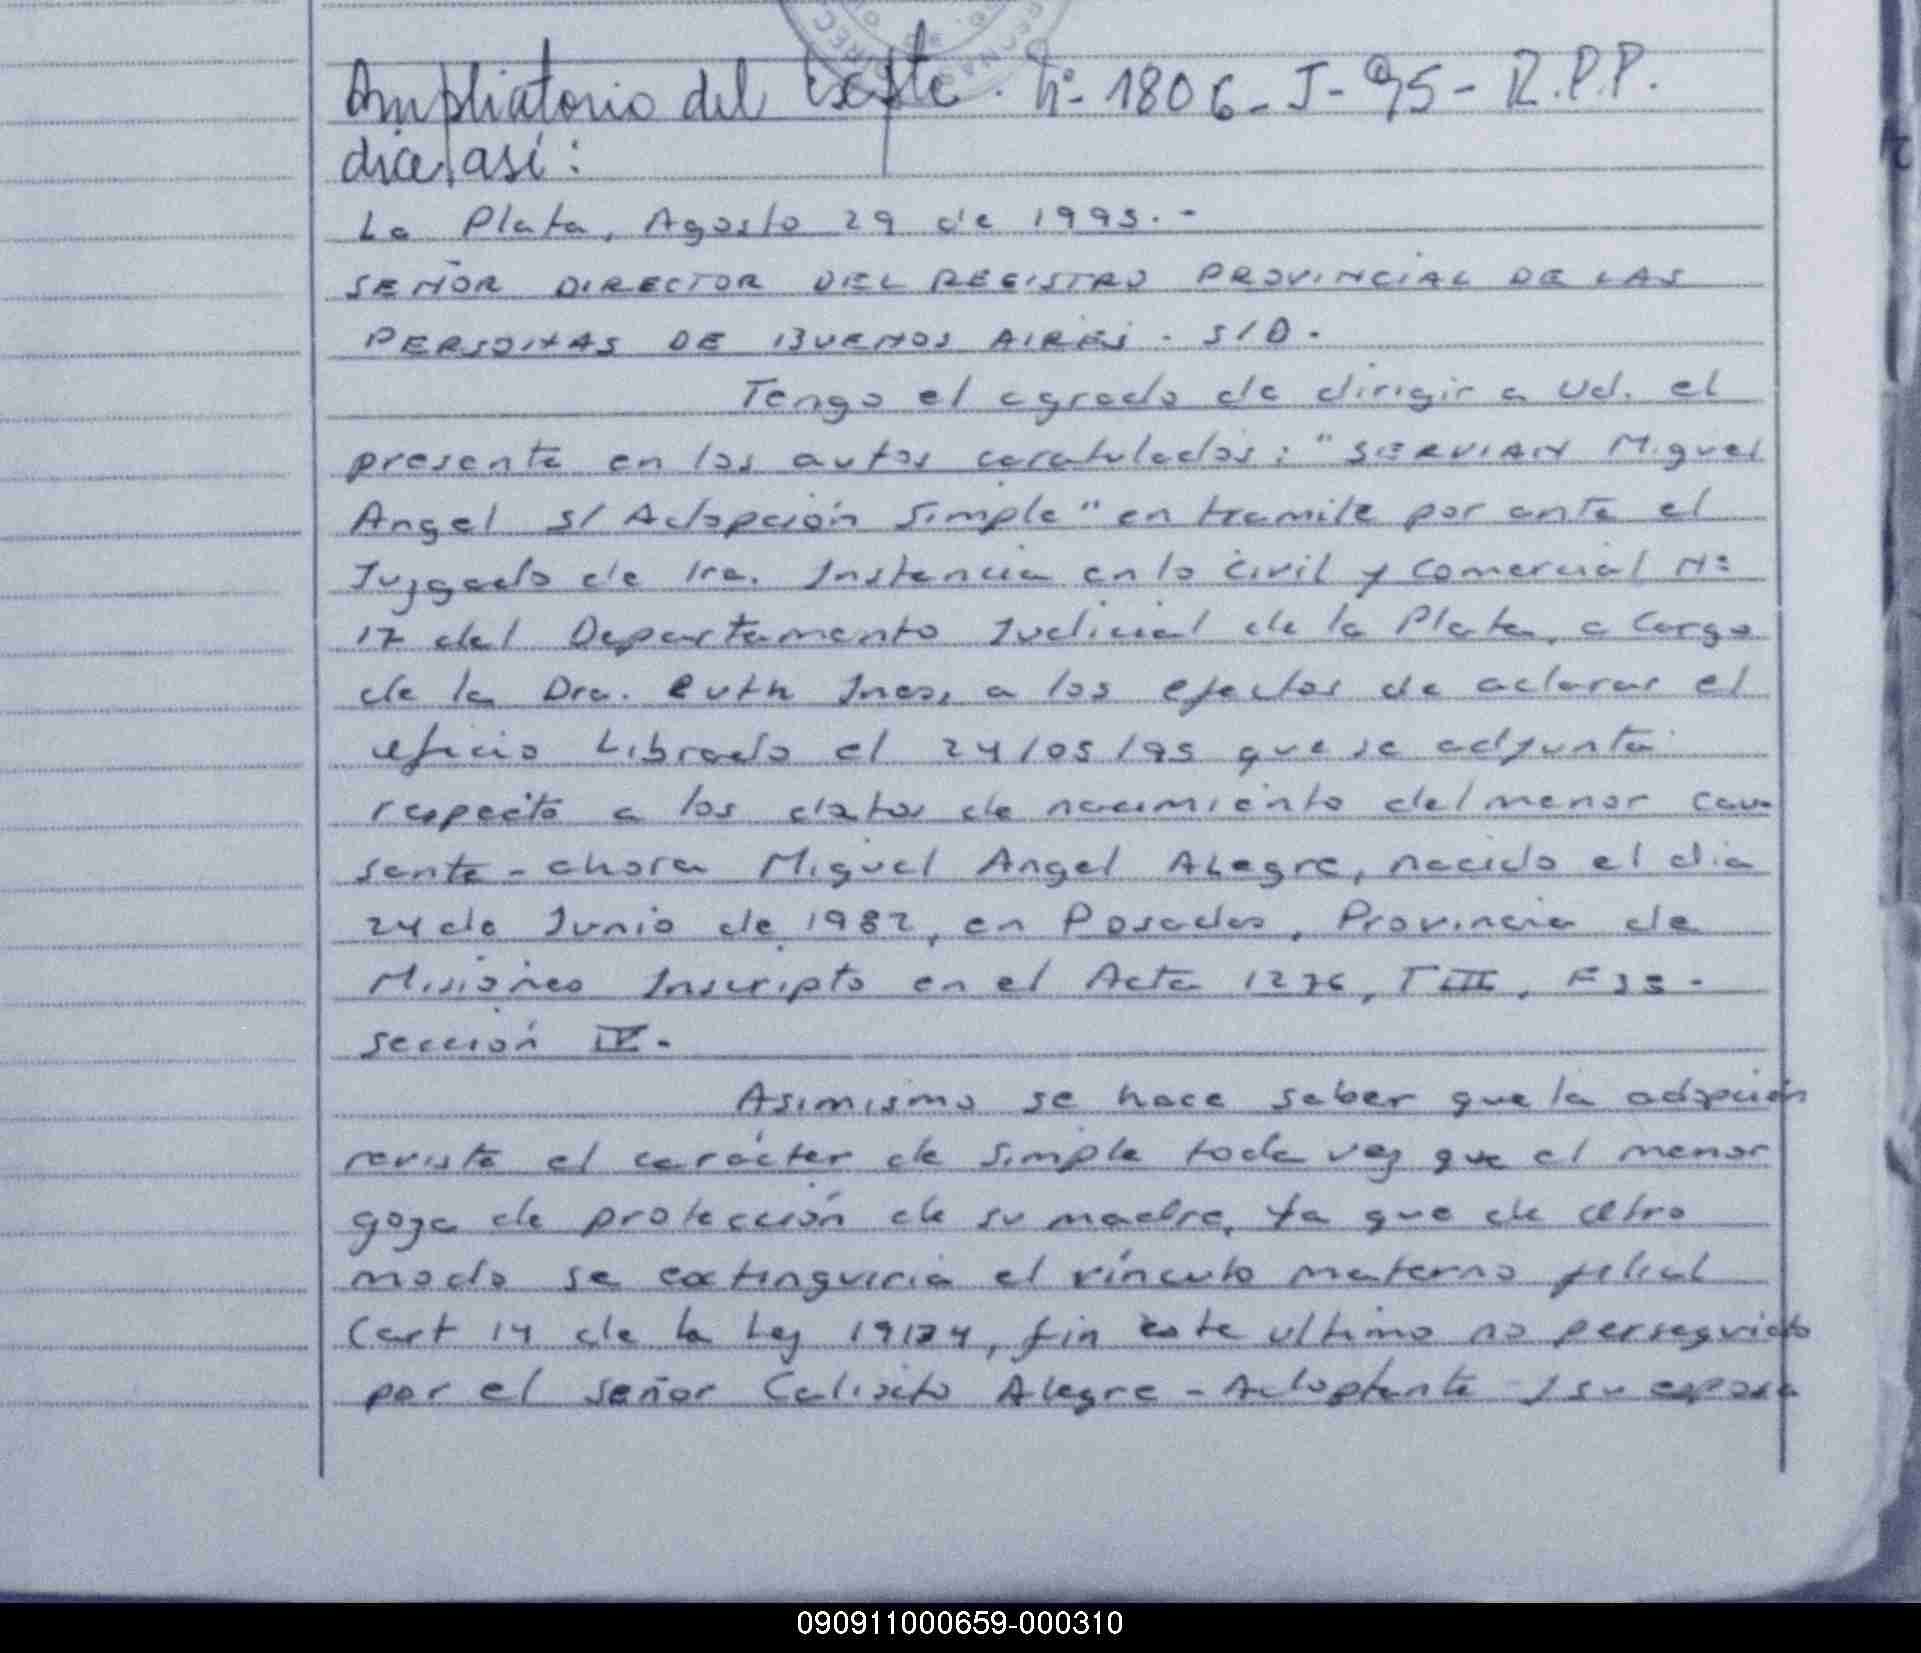 Ampliatorio del Expte. Nº 1806-J-95-R.P.P.
dice así:
La Plata, Agosto 29 de 1995.-
SEÑOR DIRECTOR DEL REGISTRO PROVINCIAL DE LAS
PERSONAS DE BUENOS AIRES. S/D.
Tengo el agrado de dirigir a Ud. el
presente en los autos caratulados: "SERVIAN Miguel
Angel s/ Adopción Simple" en tramite por ante el
Juzgado de 1ra. Instancia en lo Civil y Comercial Nº
17 del Departamento Judicial de la Plata, a Cargo
de la Dra. Ruth Ines, a los efectos de aclarar el
oficio Librado el 24/05/95 que se adjunta
respecto a los datos de nacimiento del menor cau-
sante - ahora Miguel Angel Alegre, nacido el dia
24 de Junio de 1982, en Posadas, Provincia de
Misiones Inscripto en el Acta 1276, T III, F 38-
sección IV.
Asimismo se hace saber que la adopción
reviste el carácter de simple toda vez que el menor
goza de protección de su madre, ya que de otro
modo se extinguiria el vínculo materno filial
(art 14 de la Ley 19134, fin este ultimo no perseguido
por el señor Calixto Alegre - Adoptante y su esposa
090911000659-000310